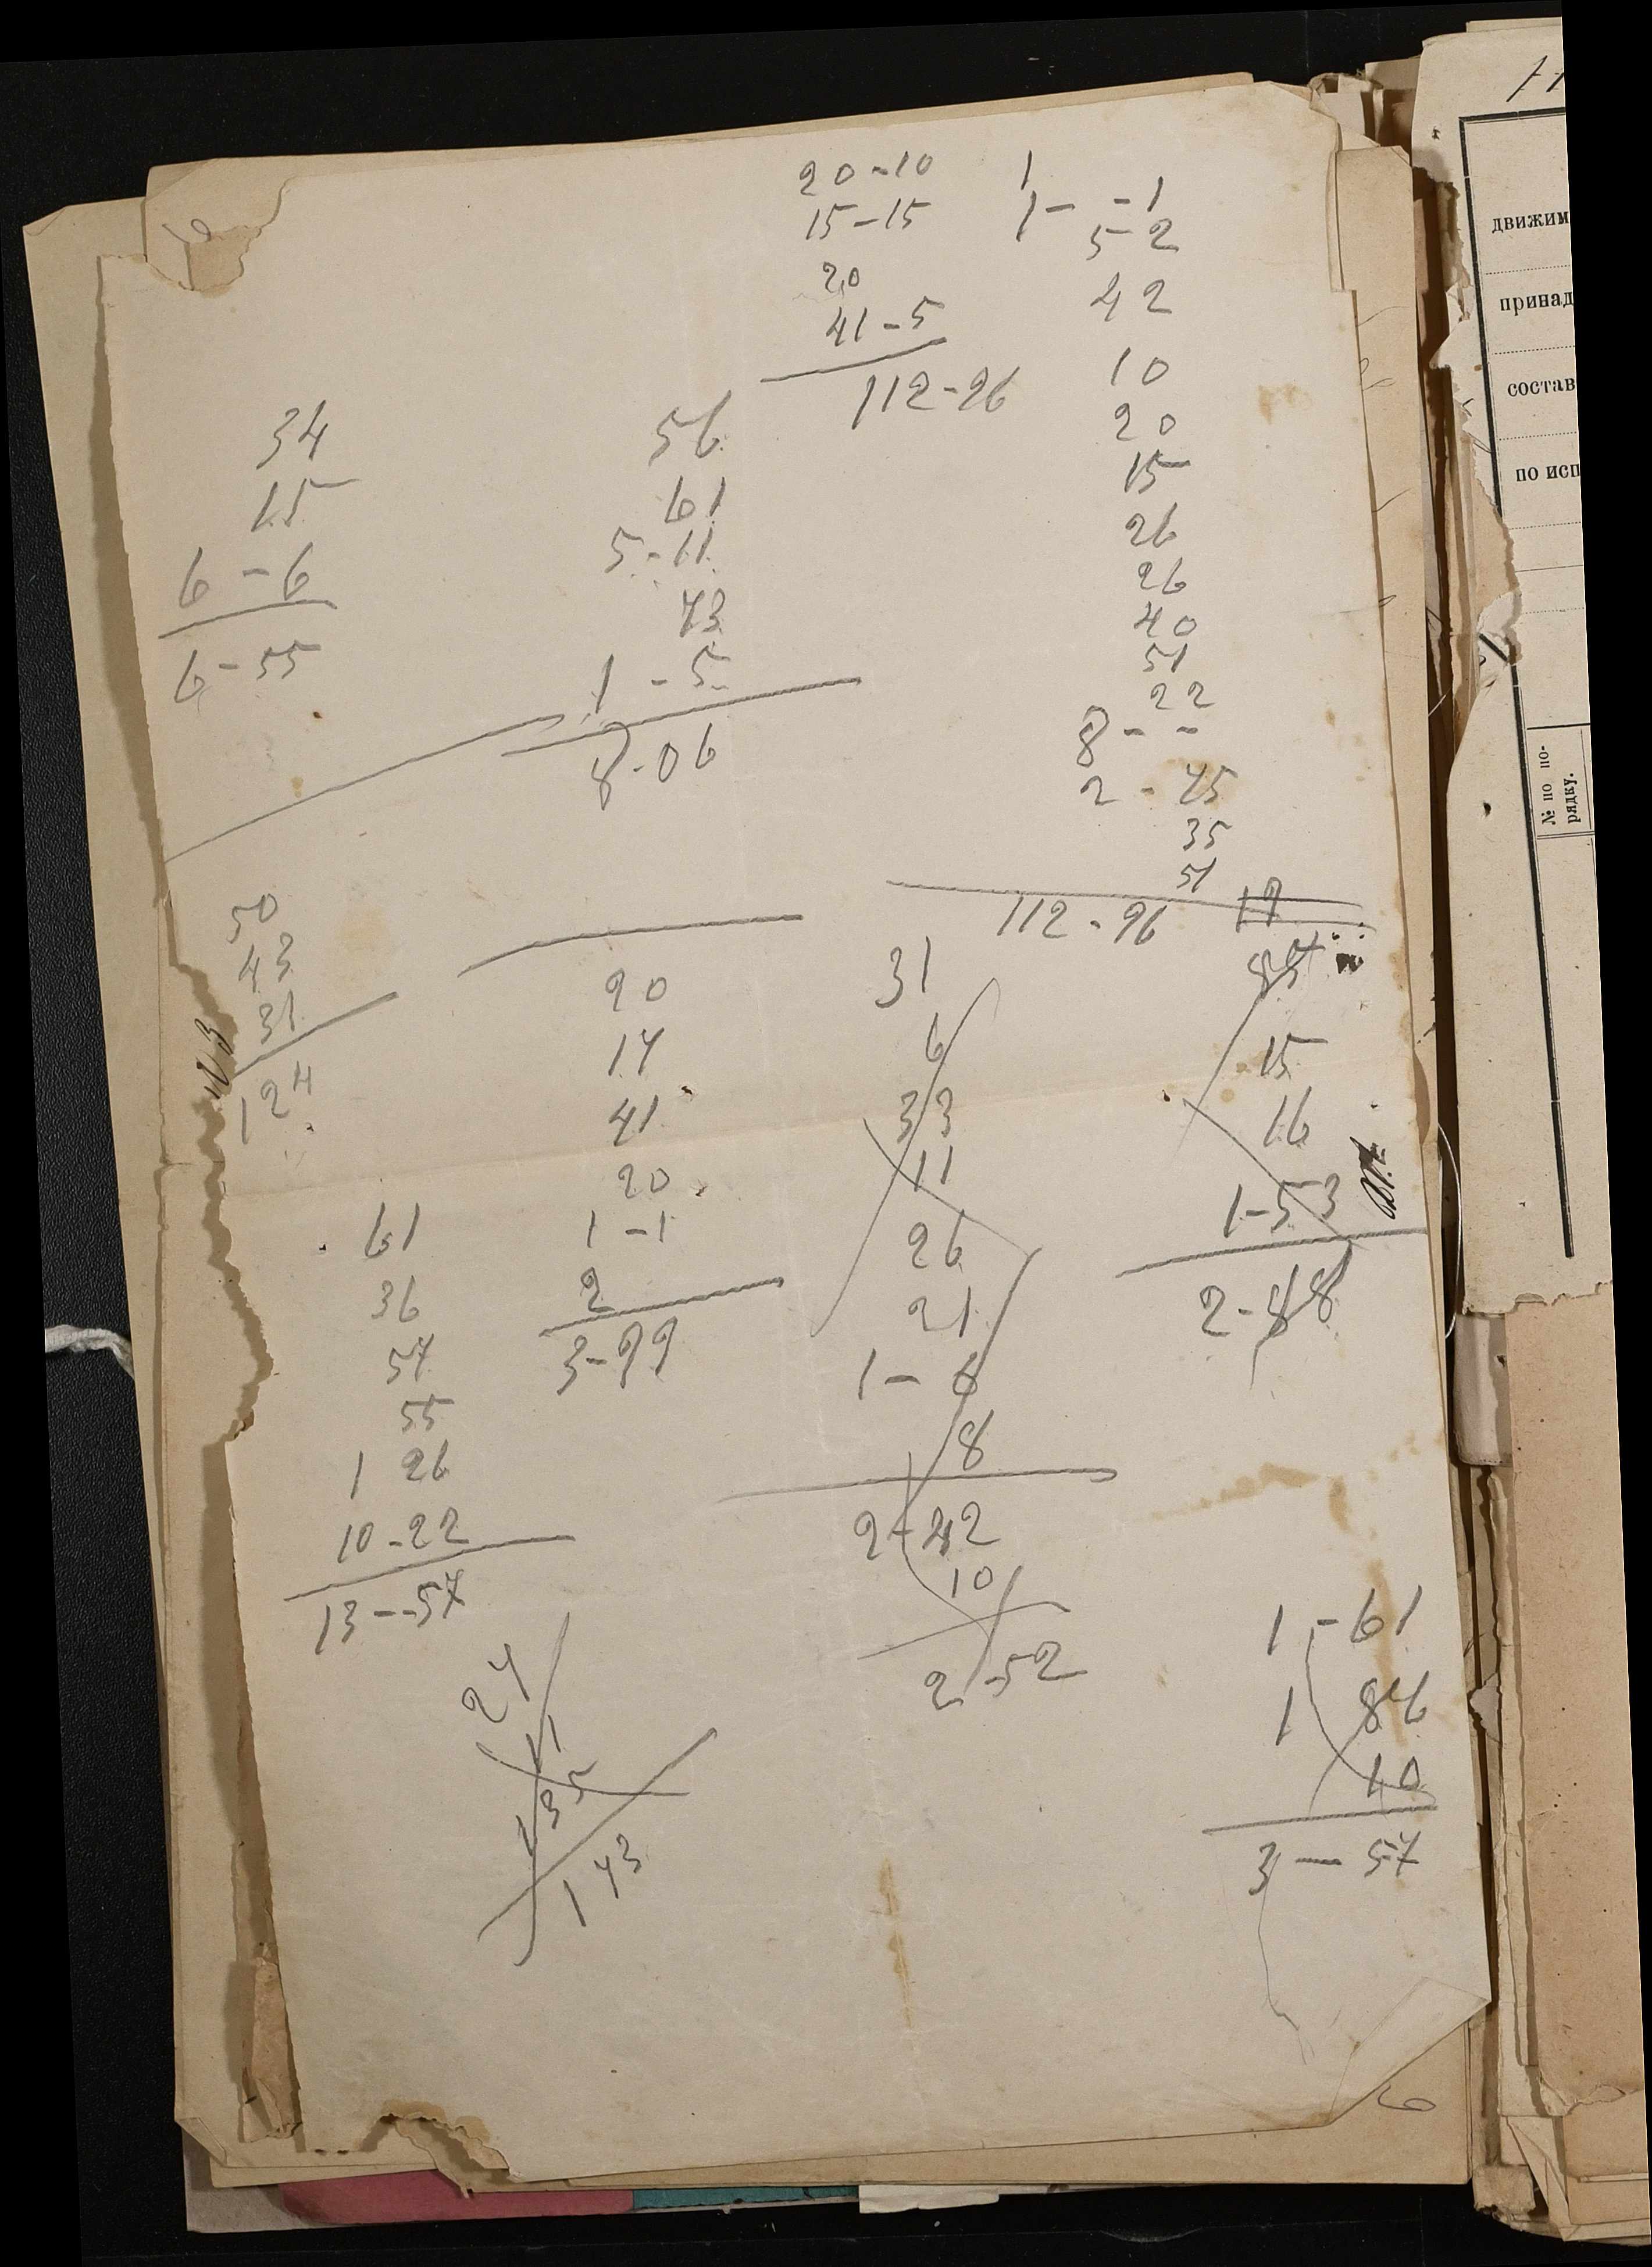 20-10
15-15
20
41-5
112-26
1
1- -1
5-2
42
10
20
15
26
26
40
51
22
8- -
2-45
35
51
112-96
34
15
6-6
6-55
56
61
5-11
73
1-5
8-06
50
43
31
124
20
17
41
20
1-1
2
3-99
31
6
33
11
26
21
1-6
8
2-42
10
2-52
17
15
16
1-53
2-88
61
36
57
55
1 26
10-22
13--57
27
11
135
173
1-61
1 86
10
3-57
движим
принад
состав
по исп
№ по по-
рядку.